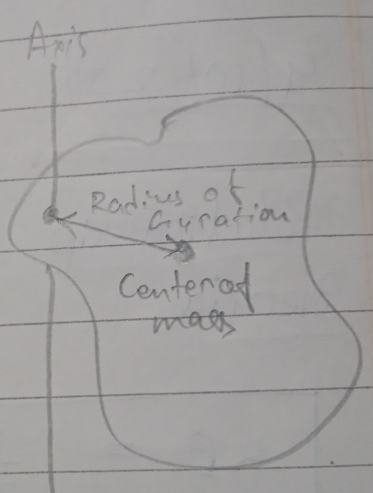 Axis
Radius of
Gyration
Center of
mass